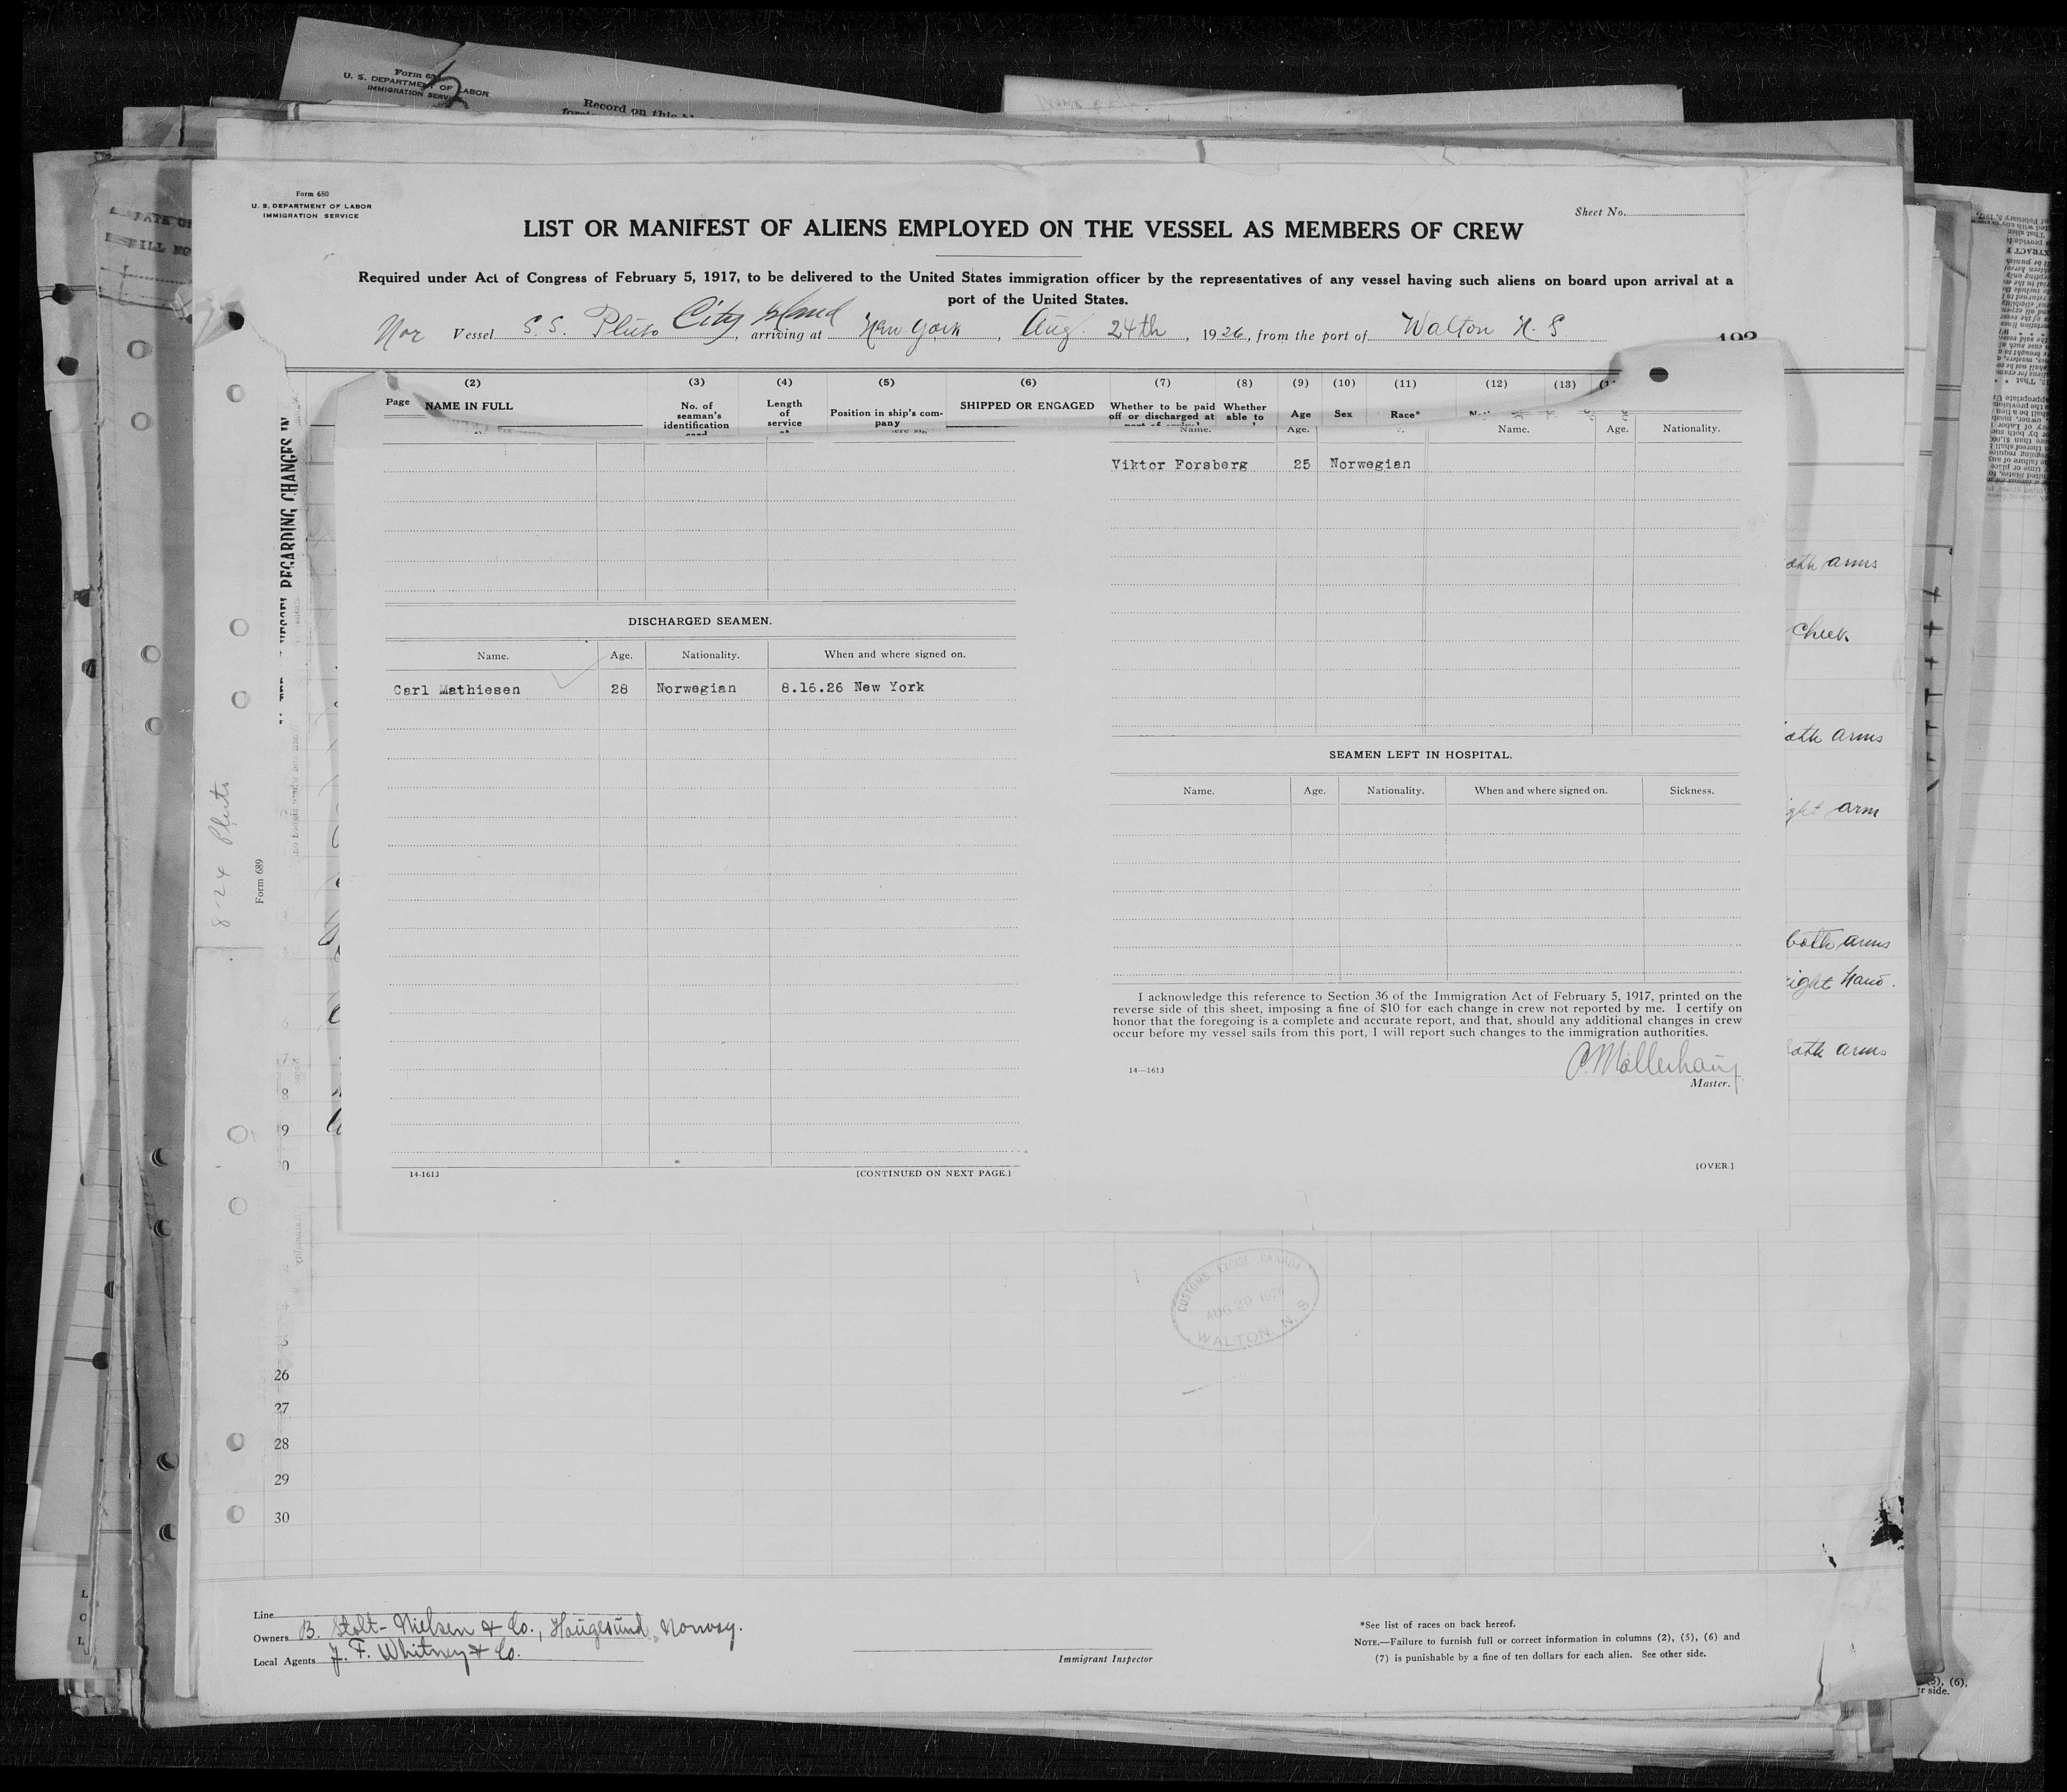 Form 680
U. S. DEPARTMENT OF LABOR
IMMIGRATION SERVICE
Record on this
Form 680
U. S. DEPARTMENT OF LABOR
IMMIGRATION SERVICE
Sheet No.
LIST OR MANIFEST OF ALIENS EMPLOYED ON THE VESSEL AS MEMBERS OF CREW
Required under Act of Congress of February 5, 1917, to be delivered to the United States immigration officer by the representatives of any vessel having such aliens on board upon arrival at a
port of the United States.
Nor Vessel S.S. Pluto City Island, arriving at New York, Aug. 24th, 1926, from the port of Walton N. S.
(2) (3) (4) (5) (6) (7) (8) (9) (10) (11) (12) (13)
Page NAME IN FULL No. of seaman's identification Length of service Position in ship's company SHIPPED OR ENGAGED Whether to be paid off or discharged at Whether able to Age Sex Race*
Name. Age. Name. Age. Nationality.
Viktor Forsberg 25 Norwegian
DISCHARGED SEAMEN.
Name. Age. Nationality. When and where signed on.
Carl Mathiesen 28 Norwegian 8.16.26 New York
14-1613
[CONTINUED ON NEXT PAGE.]
SEAMEN LEFT IN HOSPITAL.
Name. Age. Nationality. When and where signed on. Sickness.
I acknowledge this reference to Section 36 of the Immigration Act of February 5, 1917, printed on the
reverse side of this sheet, imposing a fine of $10 for each change in crew not reported by me. I certify on
honor that the foregoing is a complete and accurate report, and that, should any additional changes in crew
occur before my vessel sails from this port, I will report such changes to the immigration authorities.
14—1613
Master.
[OVER.]
REGARDING CHANGES IN
8-24 Pluto
Form 689
arms
cheek
arms
arm
both arms
right hand.
arms
7
8
9
CUSTOMS EXCISE CANADA
AUG 20 1926
WALTON N. S.
26
27
28
29
30
Line
Owners B. Stolt-Nielsen & Co., Haugesund, Norway.
Local Agents J. F. Whitney & Co.
Immigrant Inspector
*See list of races on back hereof.
NOTE.—Failure to furnish full or correct information in columns (2), (5), (6) and
(7) is punishable by a fine of ten dollars for each alien. See other side.